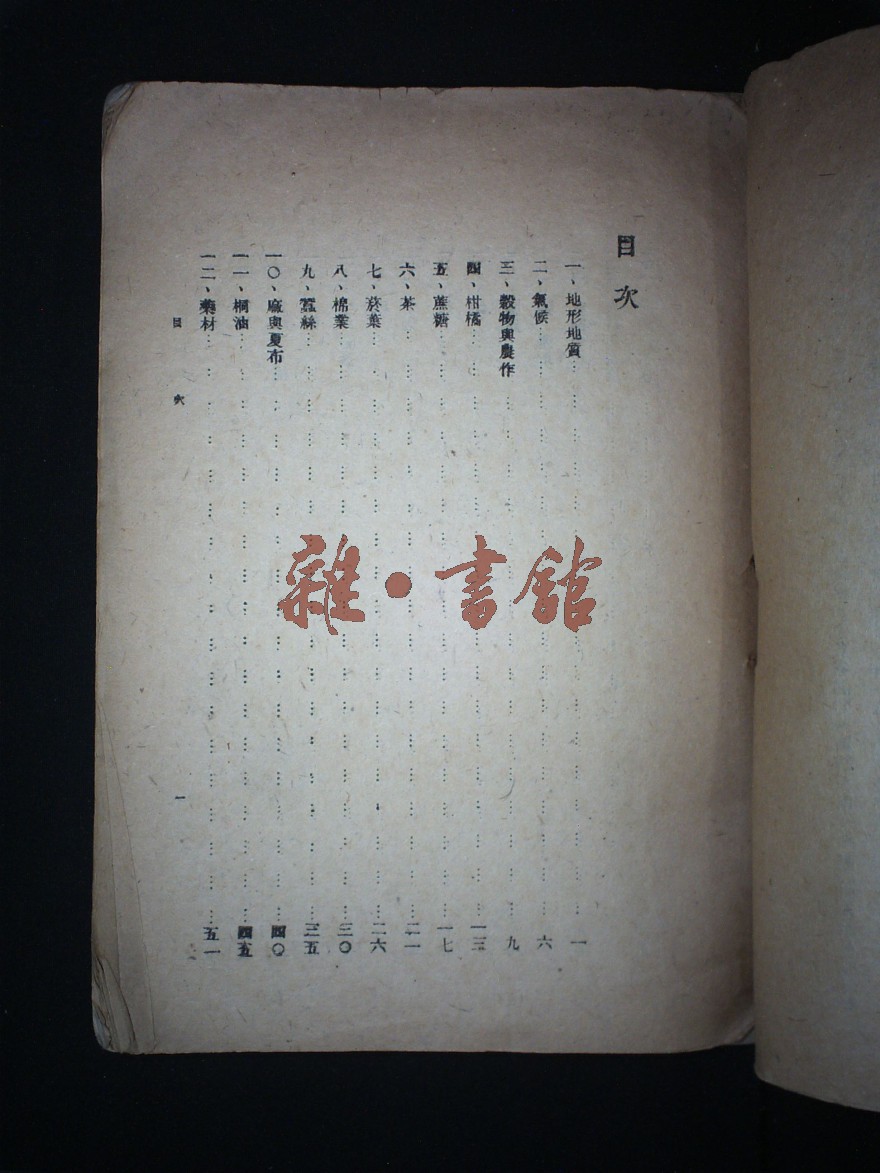 目次
一、地形地質……一
二、氣候……六
三、穀物與農作……九
四、柑橘……一三
五、蔗糖……一七
六、茶……二一
七、菸葉……二六
八、棉業……三〇
九、蠶絲……三五
一〇、麻與夏布……四〇
一一、桐油……四五
一二、藥材……五一
目次 一
雜·書館